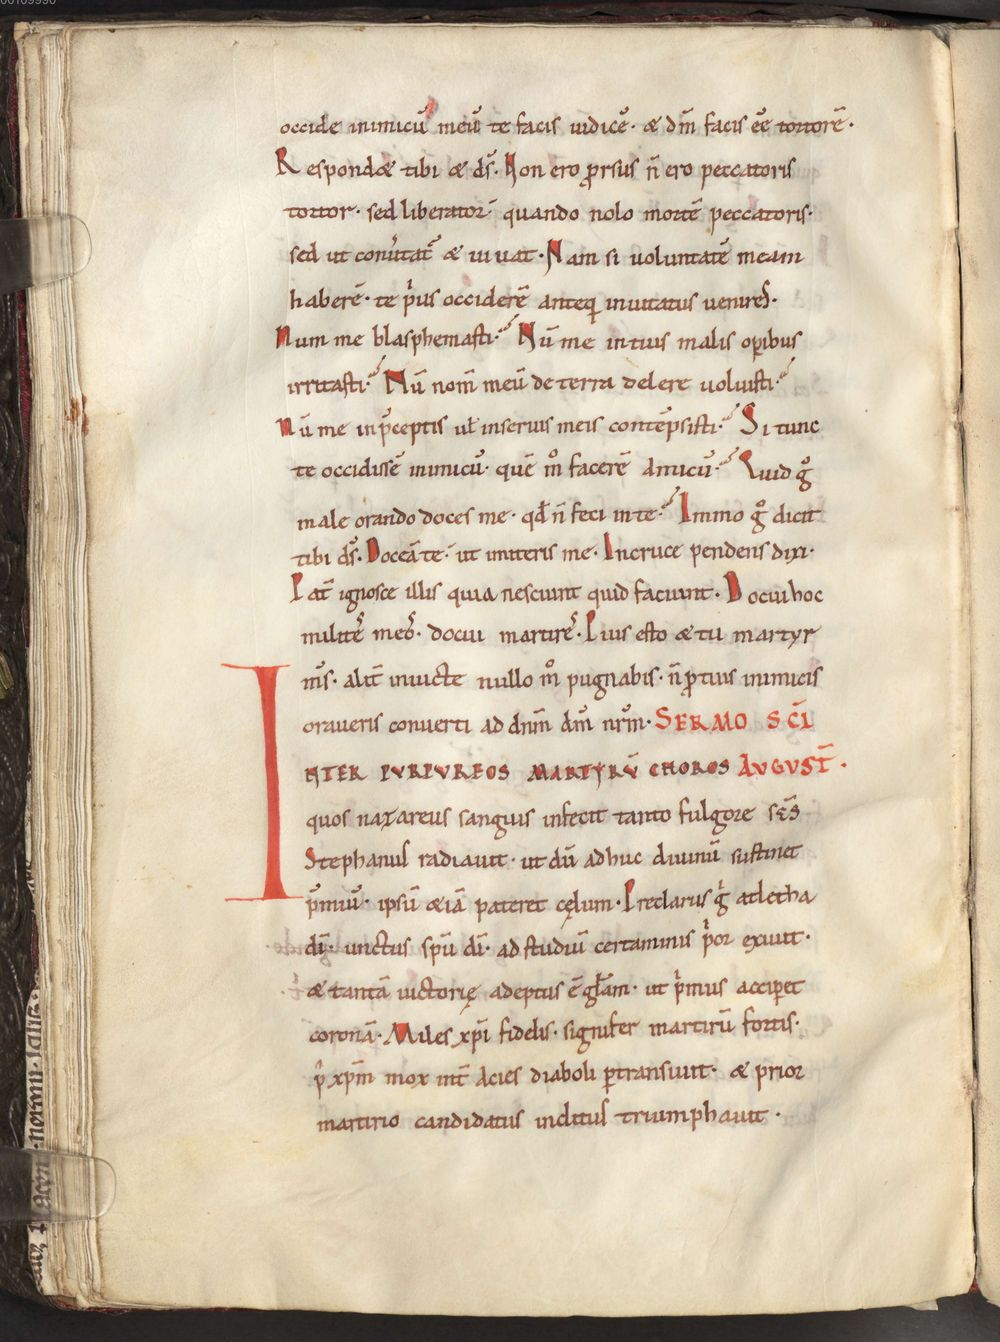 00109990
occide inimicū meū te facis iudicē· & dñm facis eē tortorē·
Respondæ tibi & dš· Non ero prorsus ñ ero peccatoris
tortor· sed liberator· quando nolo mortē peccatoris·
sed ut conuertat̄ & uiuat· Nam si uoluntatē meam
haberē· te pͥus occiderē anteq̄ inuitatus uenires·
Num me blasphemasti· Nū me in tuis malis opibus
irritasti· Nū nom̄ meū de terra delere uoluisti·
Nū me in p̄ceptis uł in seruis meis contēpsisti· Si tunc
te occidissē inimicū· quē mͦ facerē amicū· Quid gͦ
male orando doces me· qđ ñ feci in te· Immo gͦ dicit
tibi dš· Doceā te· ut imiteris me· In cruce pendens dixi·
Pat̄ ignosce illis quia nesciunt quid faciunt· Docui hoc
milites meos· docui martires· Pius esto & tu martyr
m̄s· alit̄ inuicte nullo mͦ pugnabis· ñ p tuis inimicis
oraueris conuerti ad dnm̄ dm̄ nrm̄· SERMO SC̄I
INTER PURPUREOS MARTYRŪ CHOROS AUGUST̄·
quos nazareus sanguis infecit tanto fulgore sc̄s
Stephanus radiauit· ut dū adhuc diuinū sustinet
p̄miū· ipsū &iā pateret cęlum· Preclarus gͥ atletha
dī· unctus spū dī· ad studiū certaminis pͥor exiuit·
& tantā uictorię adeptus ē głam· ut pͥmus acciperet
coronā· Miles xp̄i fidelis· signifer martirū fortis·
pͥ xp̄m mox int̄ acies diaboli ptransiuit· & prior
martirio candidatus inclitus triumphauit·